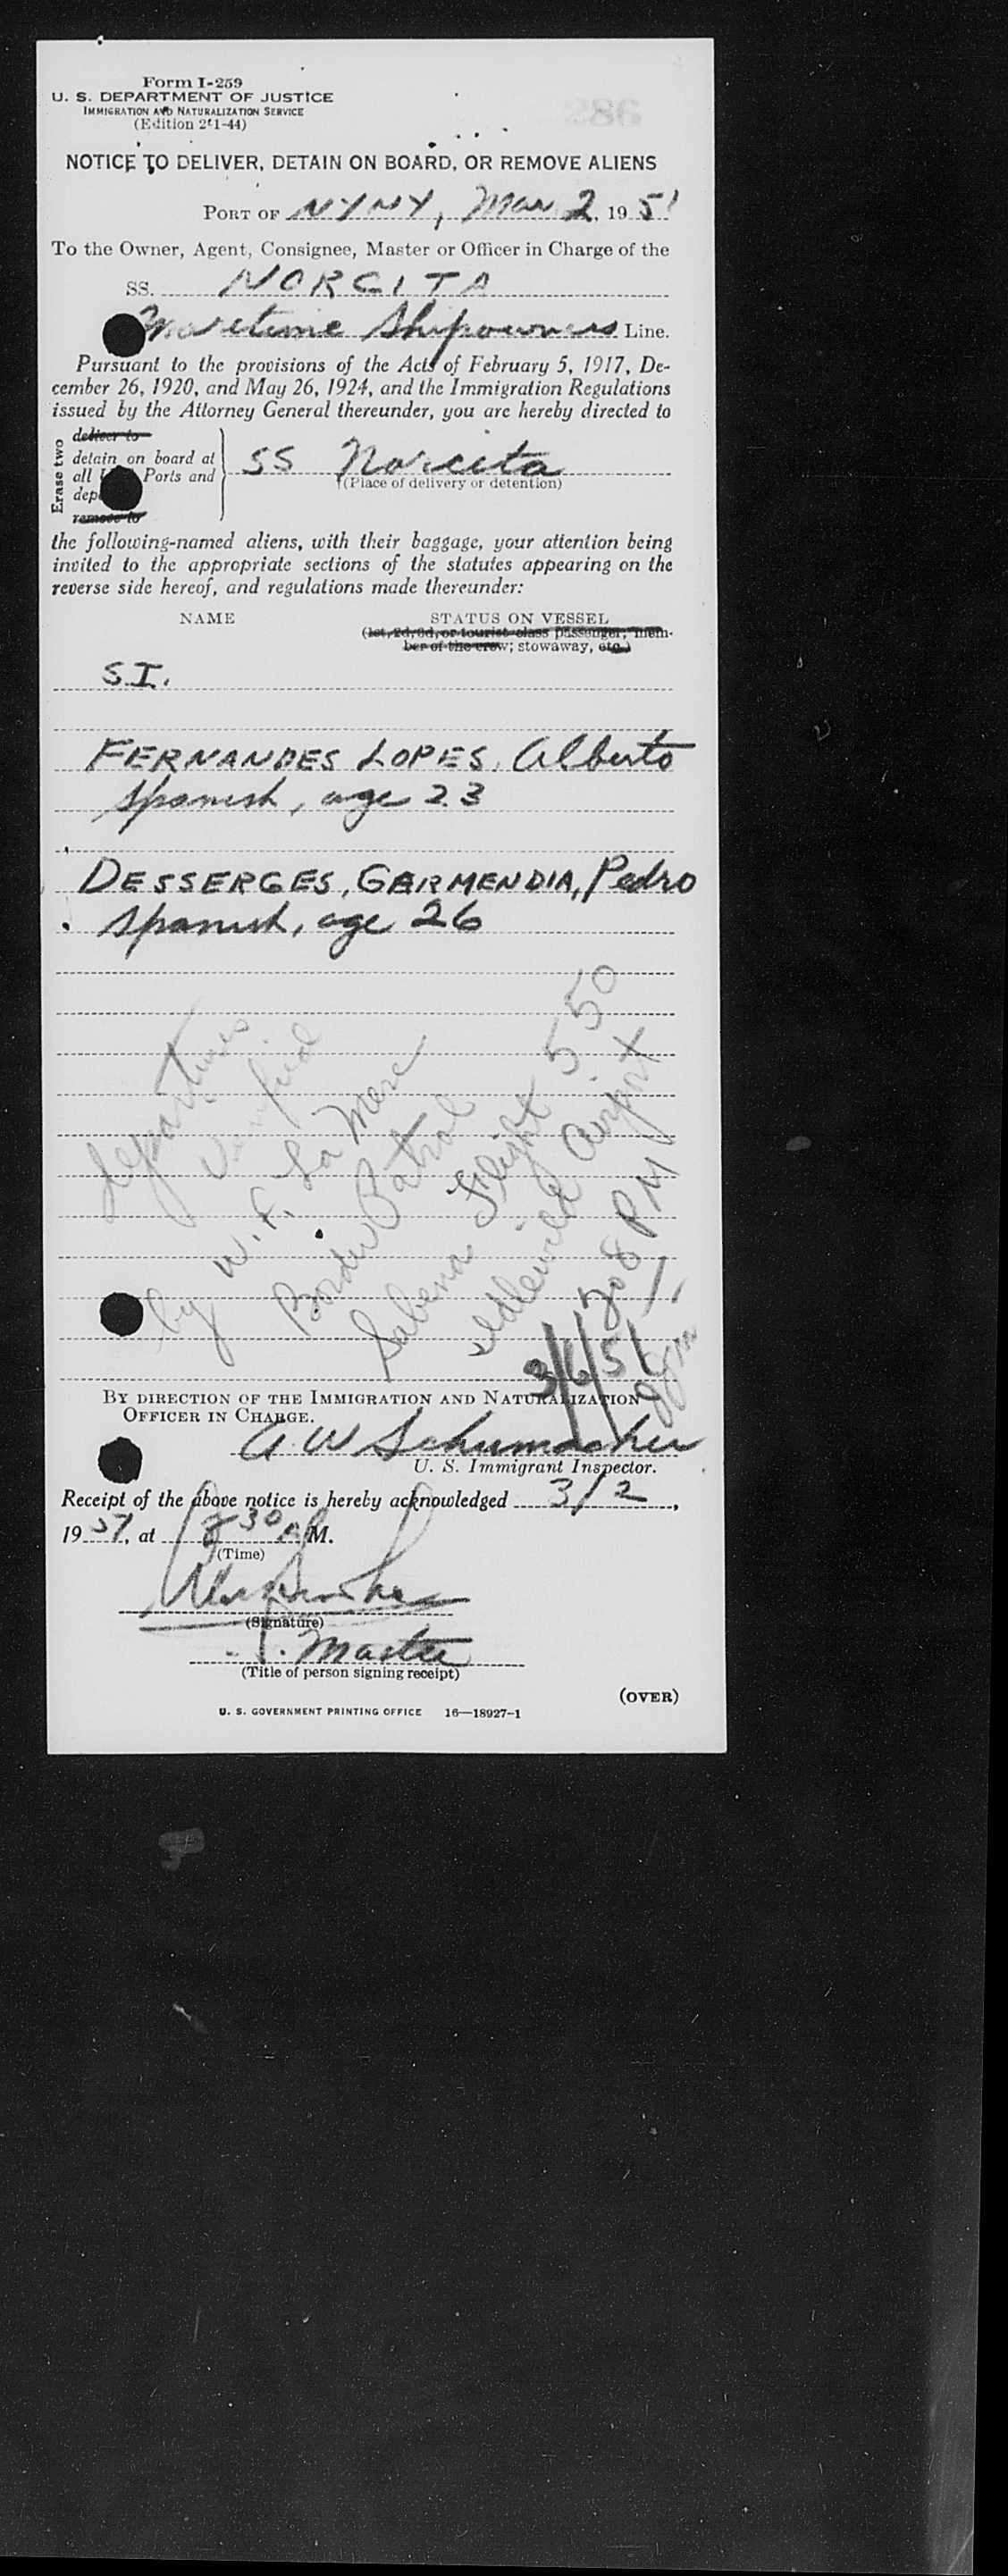 Form I-259
U. S. DEPARTMENT OF JUSTICE
IMMIGRATION AND NATURALIZATION SERVICE
(Edition 2-1-44)
NOTICE TO DELIVER, DETAIN ON BOARD, OR REMOVE ALIENS
PORT OF NYNY, Mar 2, 1951
To the Owner, Agent, Consignee, Master or Officer in Charge of the
SS. NORCITA
Maritime Shipowners Line.
Pursuant to the provisions of the Acts of February 5, 1917, De-
cember 26, 1920, and May 26, 1924, and the Immigration Regulations
issued by the Attorney General thereunder, you are hereby directed to
Erase two
deliver to
detain on board at
all Ports and
remove to
SS Norcita
(Place of delivery or detention)
the following-named aliens, with their baggage, your attention being
invited to the appropriate sections of the statutes appearing on the
reverse side hereof, and regulations made thereunder:
NAME STATUS ON VESSEL
(1st, 2d, 3d, or tourist class passenger; mem-
ber of the crew; stowaway, etc.)
S.I.
FERNANDES LOPES, Alberto
Spanish, age 23
DESSERGES, GARMENDIA, Pedro
Spanish, age 26
departures
verified
by W. F. La Mere
Border Patrol
Sabena Flight 550
Idlewild Airport
308 PM
3/6/51
BY DIRECTION OF THE IMMIGRATION AND NATURALIZATION
OFFICER IN CHARGE.
A W Schumacher
U. S. Immigrant Inspector.
Receipt of the above notice is hereby acknowledged 3/2,
1951, at 830 A M.
(Time)
(Signature)
Master
(Title of person signing receipt)
(OVER)
U. S. GOVERNMENT PRINTING OFFICE 16—18927-1